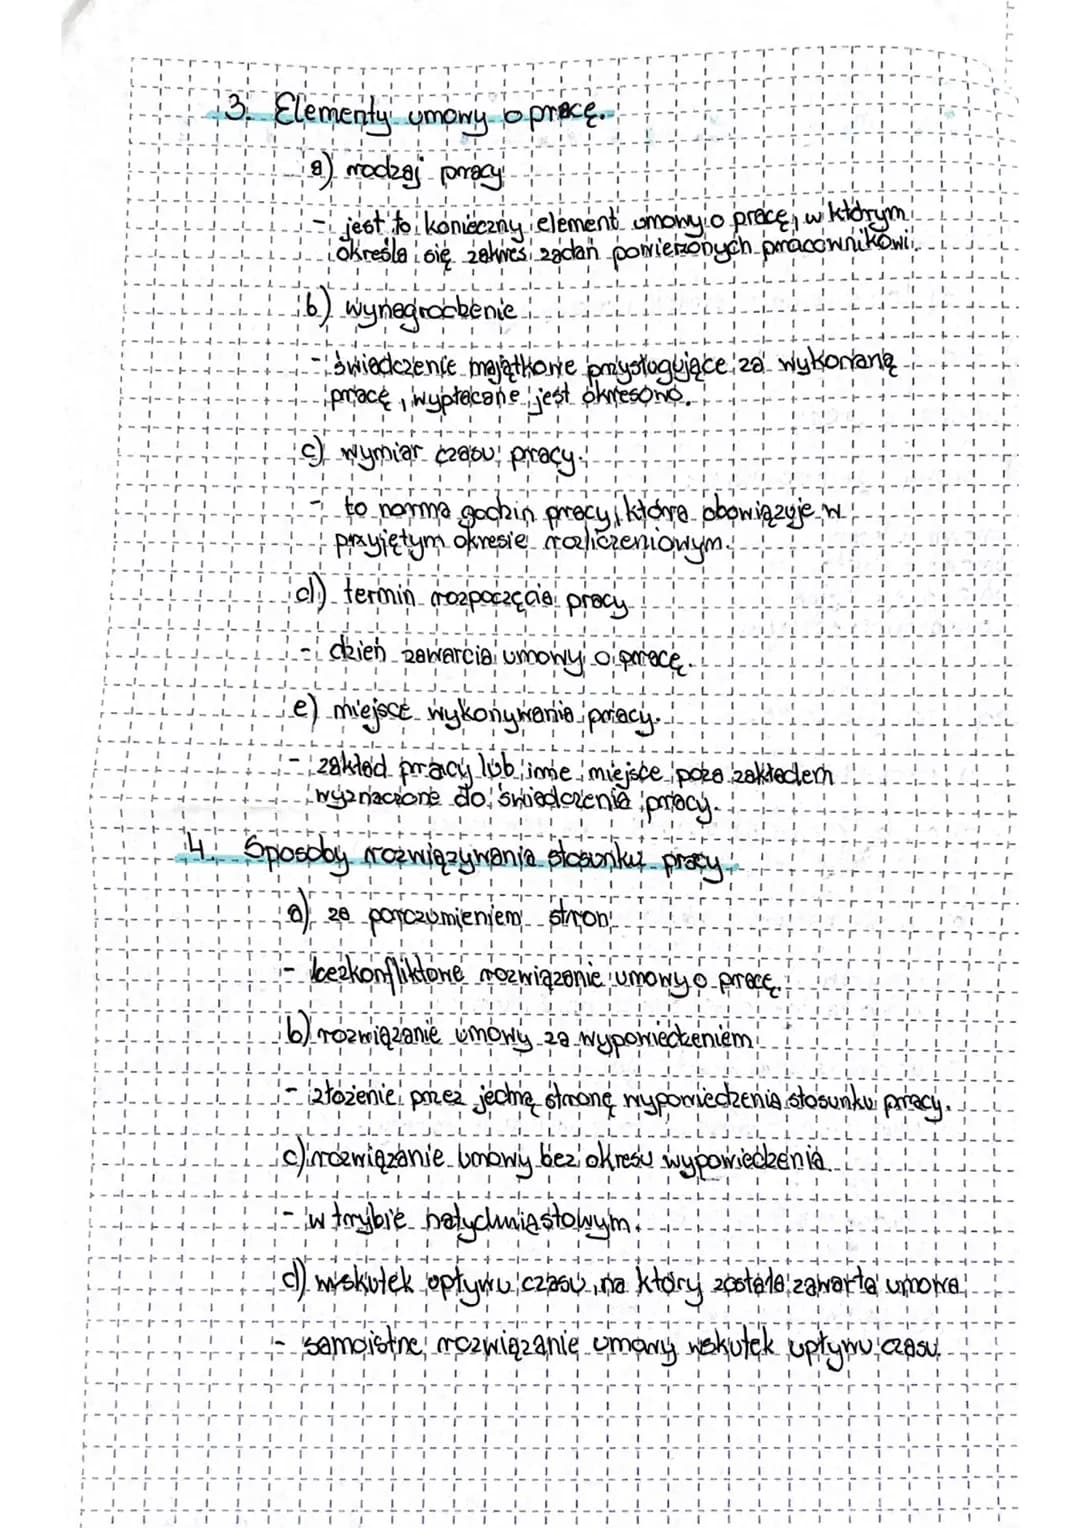 3. Elementy umowy o pracę.
a) rodzaj pracy
- jest to konieczny element umowy o pracę, w którym
określa się zakres zadań powierzonych pracownikowi.
b) wynagrodzenie
- świadczenie majątkowe przysługujące za wykonaną
pracę, wypłacane jest okresowo.
c) wymiar czasu pracy.
- to norma godzin pracy, która obowiązuje w
przyjętym okresie rozliczeniowym.
d) termin rozpoczęcia pracy
- dzień zawarcia umowy o pracę.
e) miejsce wykonywania pracy.
- zakład pracy lub inne miejsce poza zakładem
wyznaczone do świadczenia pracy.
4. Sposoby rozwiązywania stosunku pracy.
a) za porozumieniem stron
- bezkonfliktowe rozwiązanie umowy o pracę.
b) rozwiązanie umowy za wypowiedzeniem
- złożenie przez jedną stronę wypowiedzenia stosunku pracy.
c) rozwiązanie umowy bez okresu wypowiedzenia.
- w trybie natychmiastowym.
d) wskutek upływu czasu, na który została zawarta umowa
- samoistne rozwiązanie umowy wskutek upływu czasu.